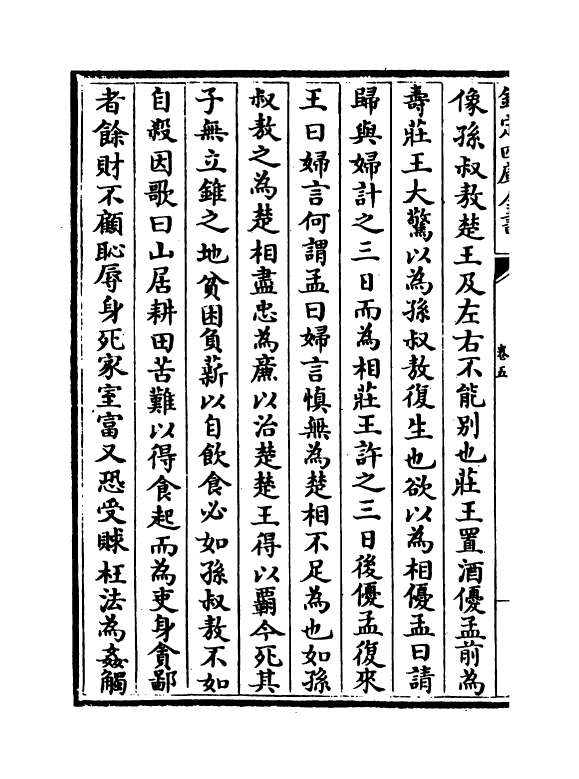 欽定四庫全書
卷五
像孫叔敖楚王及左右不能別也莊王置酒優孟前為
壽莊王大驚以為孫叔敖復生也欲以為相優孟曰請
歸與婦計之三日而為相莊王許之三日後優孟復來
王曰婦言何謂孟曰婦言慎無為楚相不足為也如孫
叔敖之為楚相盡忠為廉以治楚楚王得以霸今死其
子無立錐之地貧困負薪以自飲食必如孫叔敖不如
自殺因歌曰山居耕田苦難以得食起而為吏身貪鄙
者餘財不顧恥辱身死家室富又恐受賕枉法為姦觸